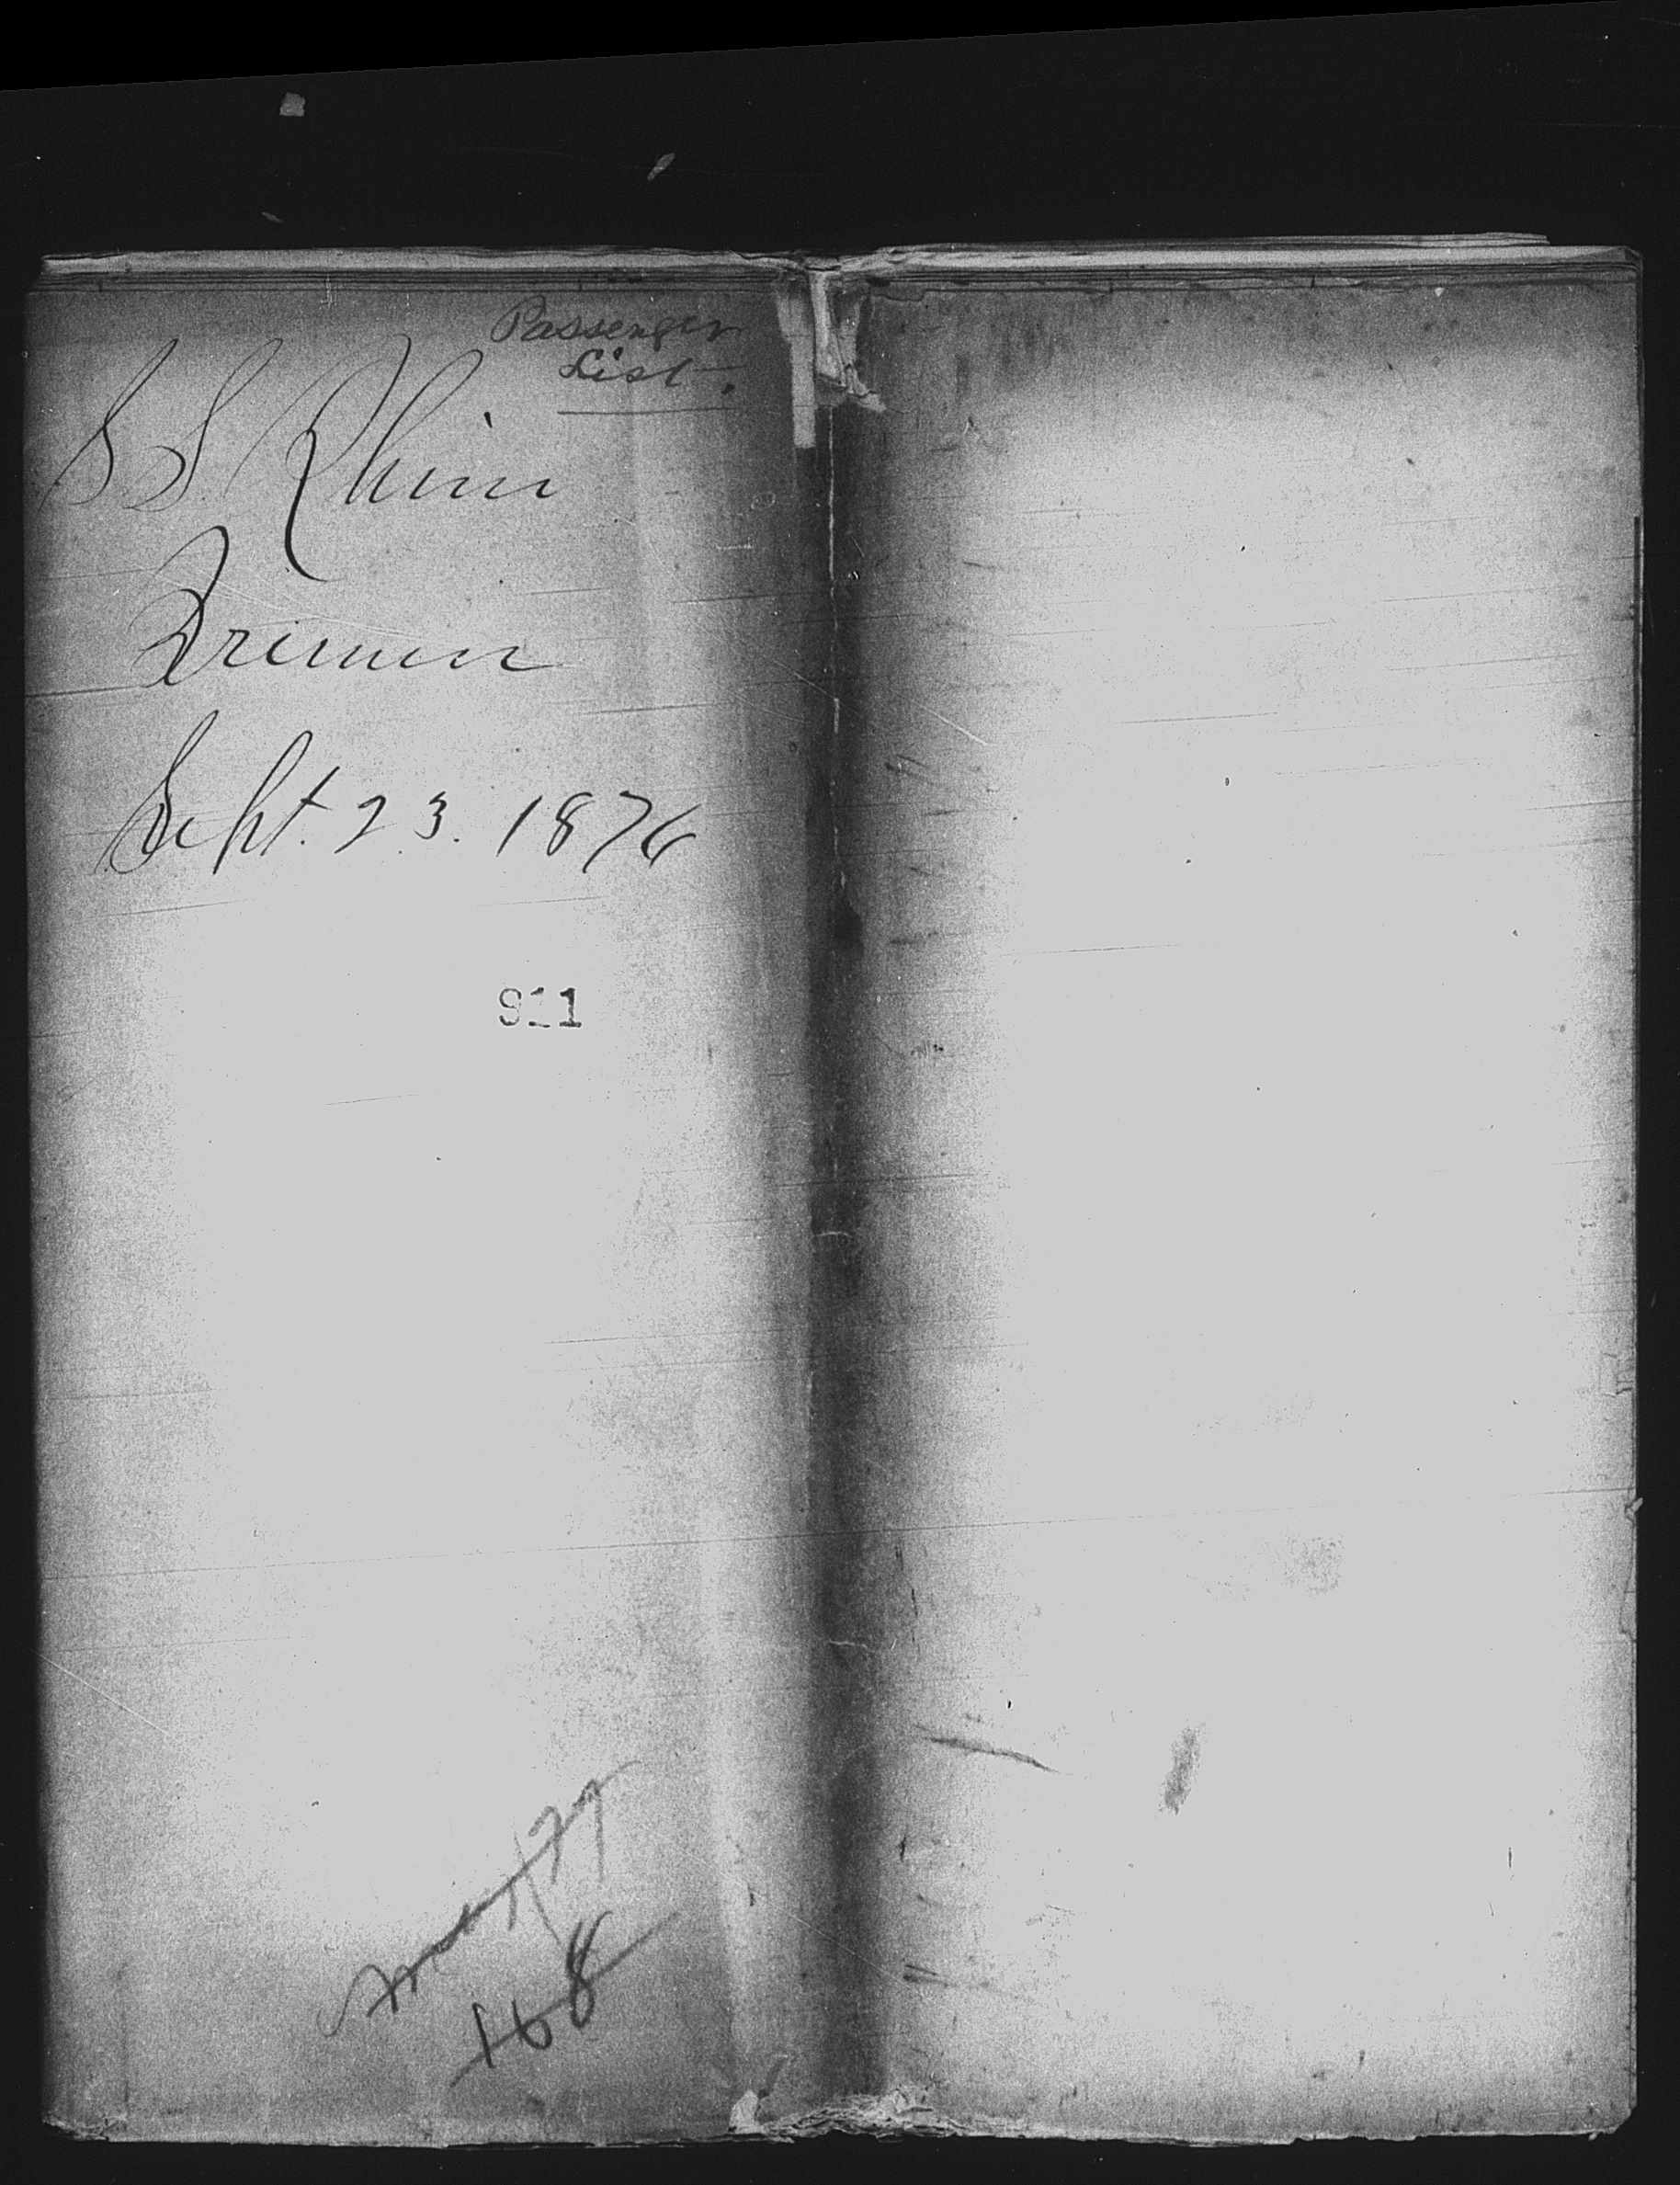 Passenger
List.
S S Rhein
Bremen
Sept. 23. 1876
911
168